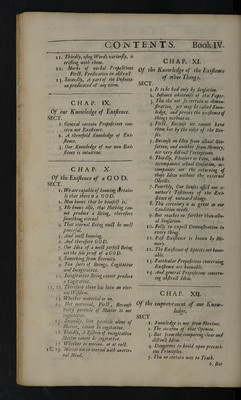 CONTENTS. Book IV.
21. Thirdly, using Words variously, is
trifling with them.
12. Marks of verbal Propositions
First, Predication in abstract.
13. Secondly, A part of the Definiti-
on predicated of any term.
CHAP. IX.
Of our Knowledge of Existence.
SECT.
1. General certain Propositions con-
cern not Existence.
2. A threefold Knowledge of Exis-
tence.
3. Our Knowledge of our own Exis-
tence is intuitive.
CHAP. X.
Of the Existence of a GOD.
SECT.
1. We are capable of knowing certain-
ly that there is a GOD.
2. Man knows that he himself is.
3. He knows also, that Nothing can-
not produce a Being, therefore
something eternal.
4. That eternal Being must be most
powerful.
5. And most knowing.
6. And therefore GOD.
7. Our Idea of a most perfect Being,
not the sole proof of a GOD.
8. Something from Eternity.
9. Two sorts of Beings, Cogitative
and Incogitative.
10. Incogitative Being cannot produce
a Cogitative.
11, 12. Therefore there has been an eter-
nal Wisdom.
13. Whether material or no.
14. Not material, First, Because
every particle of Matter is not
cogitative.
15. Secondly, One particle alone of
Matter, cannot be cogitative.
16. Thirdly, A System of incogitative
Matter cannot be cogitative.
17. Whether in motion, or at rest.
18, 19. Matter not co-eternal with an eter-
nal Mind.
CHAP. XI.
Of the Knowledge of the Existence
of other Things.
SECT.
1. Is to be had only by Sensation.
2. Instance whiteness of this Paper.
3. This tho' not so certain as demon-
stration, yet may be called Know-
ledge, and proves the existence of
things without us.
4. First, Because we cannot have
them but by the inlet of the Sen-
ses.
5. Because an Idea from actual Sen-
sation, and another from Memory,
are very distinct Perceptions.
6. Thirdly, Pleasure or Pain, which
accompanies actual Sensation, ac-
companies not the returning of
those Ideas without the external
Objects.
7. Fourthly, Our Senses assist one a-
nother's Testimony of the Exis-
tence of outward things.
8. This certainty is as great as our
condition needs.
9. But reaches no further than actu-
al Sensation.
10. Folly to expect Demonstration in
every thing.
11. Past Existence is known by Me-
mory.
12. The Existence of Spirits not know-
able.
13. Particular Propositions concerning
Existence are knowable.
14. And general Propositions concern-
ing abstract Ideas.
CHAP. XII.
Of the improvement of our Know-
ledge.
SECT.
1. Knowledge is not from Maxims.
2. The occasion of that Opinion.
3. But from the comparing clear and
distinct Ideas.
4. Dangerous to build upon precari-
ous Principles.
5. This no certain way to Truth.
6. But